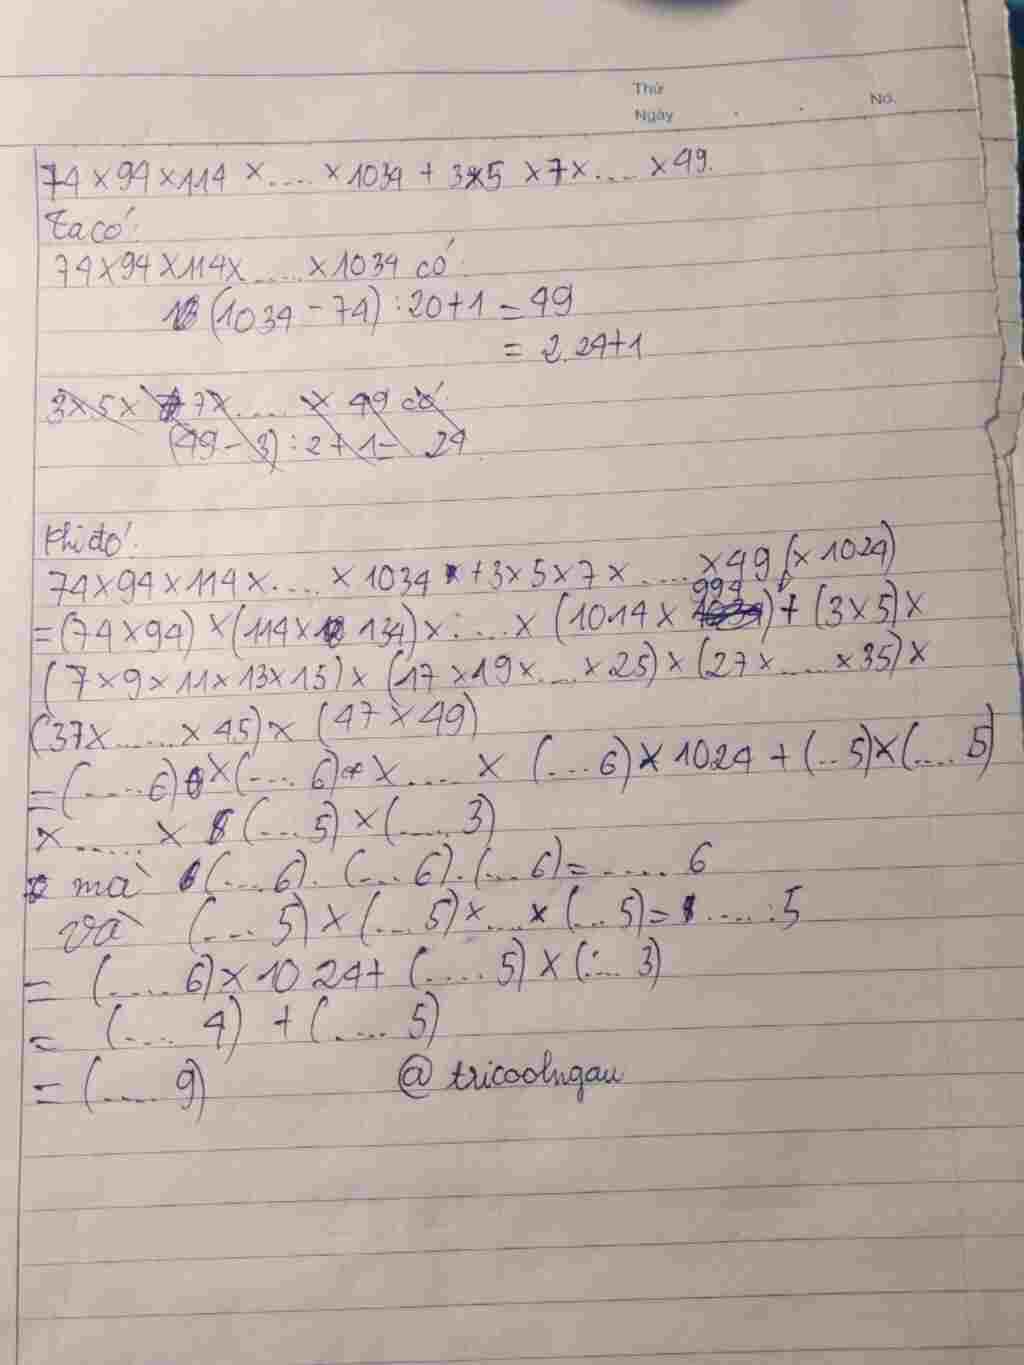 Thứ
Ngày
No.
74 × 94 × 114 × .... × 1034 + 3×5 × 7 × .... × 49.
Ta có:
74 × 94 × 114 × ..... × 1034 có:
(1034 - 74) : 20 + 1 = 49
= 2.24+1
3 × 5 × 7 × .... × 49 có:
(49 - 3) : 2 + 1 = 24
Khi đó:
74 × 94 × 114 × .... × 1034 + 3 × 5 × 7 × ..... × 49 (× 1024)
= (74 × 94) × (114 × 134) × .... × (1014 × 994) + (3 × 5) ×
(7 × 9 × 11 × 13 × 15) × (17 × 19 × .... × 25) × (27 × ..... × 35) ×
(37 × ...... × 45) × (47 × 49)
= (.....6) × (.... 6) × .... × (....6) × 1024 + (...5) × (.... 5)
× ...... × (.... 5) × (..... 3)
mà (....6). (....6).(....6) = ..... 6
và (.... 5) × (....5) × .... × (....5) = ..... 5
= (..... 6) × 1024 + (..... 5) × (.... 3)
= (.... 4) + (..... 5)
= (.... 9)
@ tricoolngau